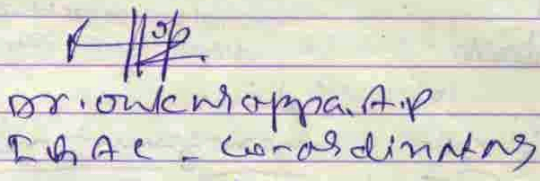 Dr. Onkarappa. A.P
IQAC - Co-ordinator